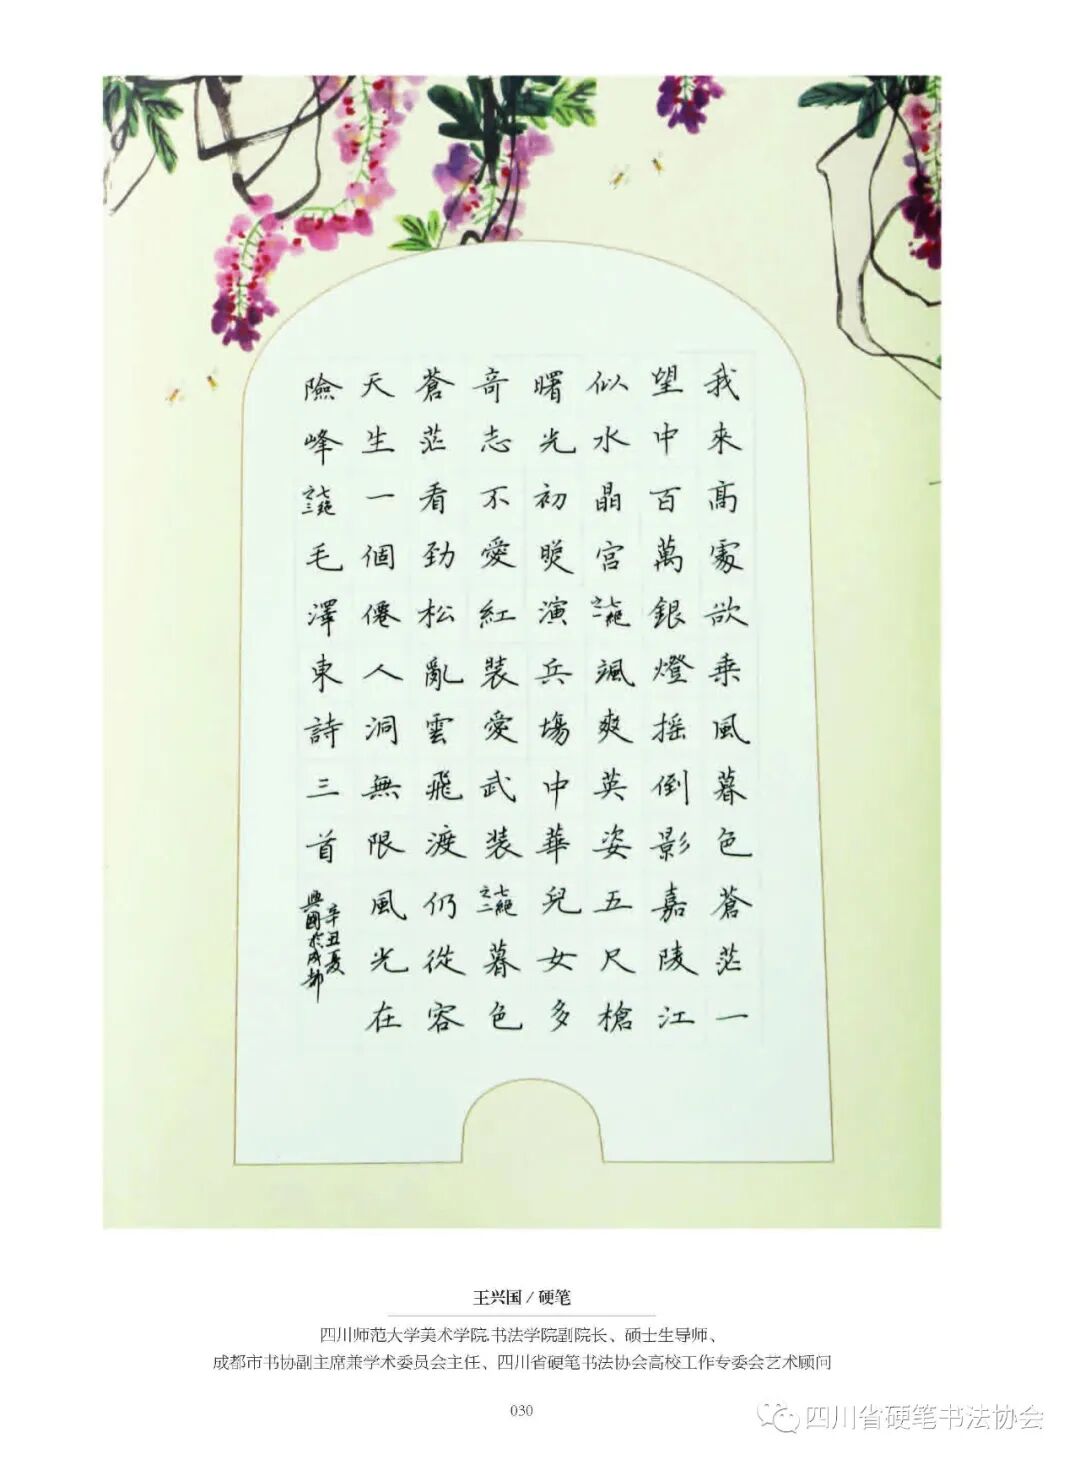 我來髙處欲乘風暮色蒼茫一
望中百萬銀燈摇倒影嘉陵江
似水晶宮七絕之一颯爽英姿五尺槍
曙光初照演兵場中華兒女多
奇志不愛紅裝愛武裝七絕之二暮色
蒼茫看勁松亂雲飛渡仍從容
天生一個僊人洞無限風光在
險峰七絕之三毛澤東詩三首
辛丑夏
興國於成都
王兴国 / 硬笔
四川师范大学美术学院.书法学院副院长、硕士生导师、
成都市书协副主席兼学术委员会主任、四川省硬笔书法协会高校工作专委会艺术顾问
030
四川省硬笔书法协会